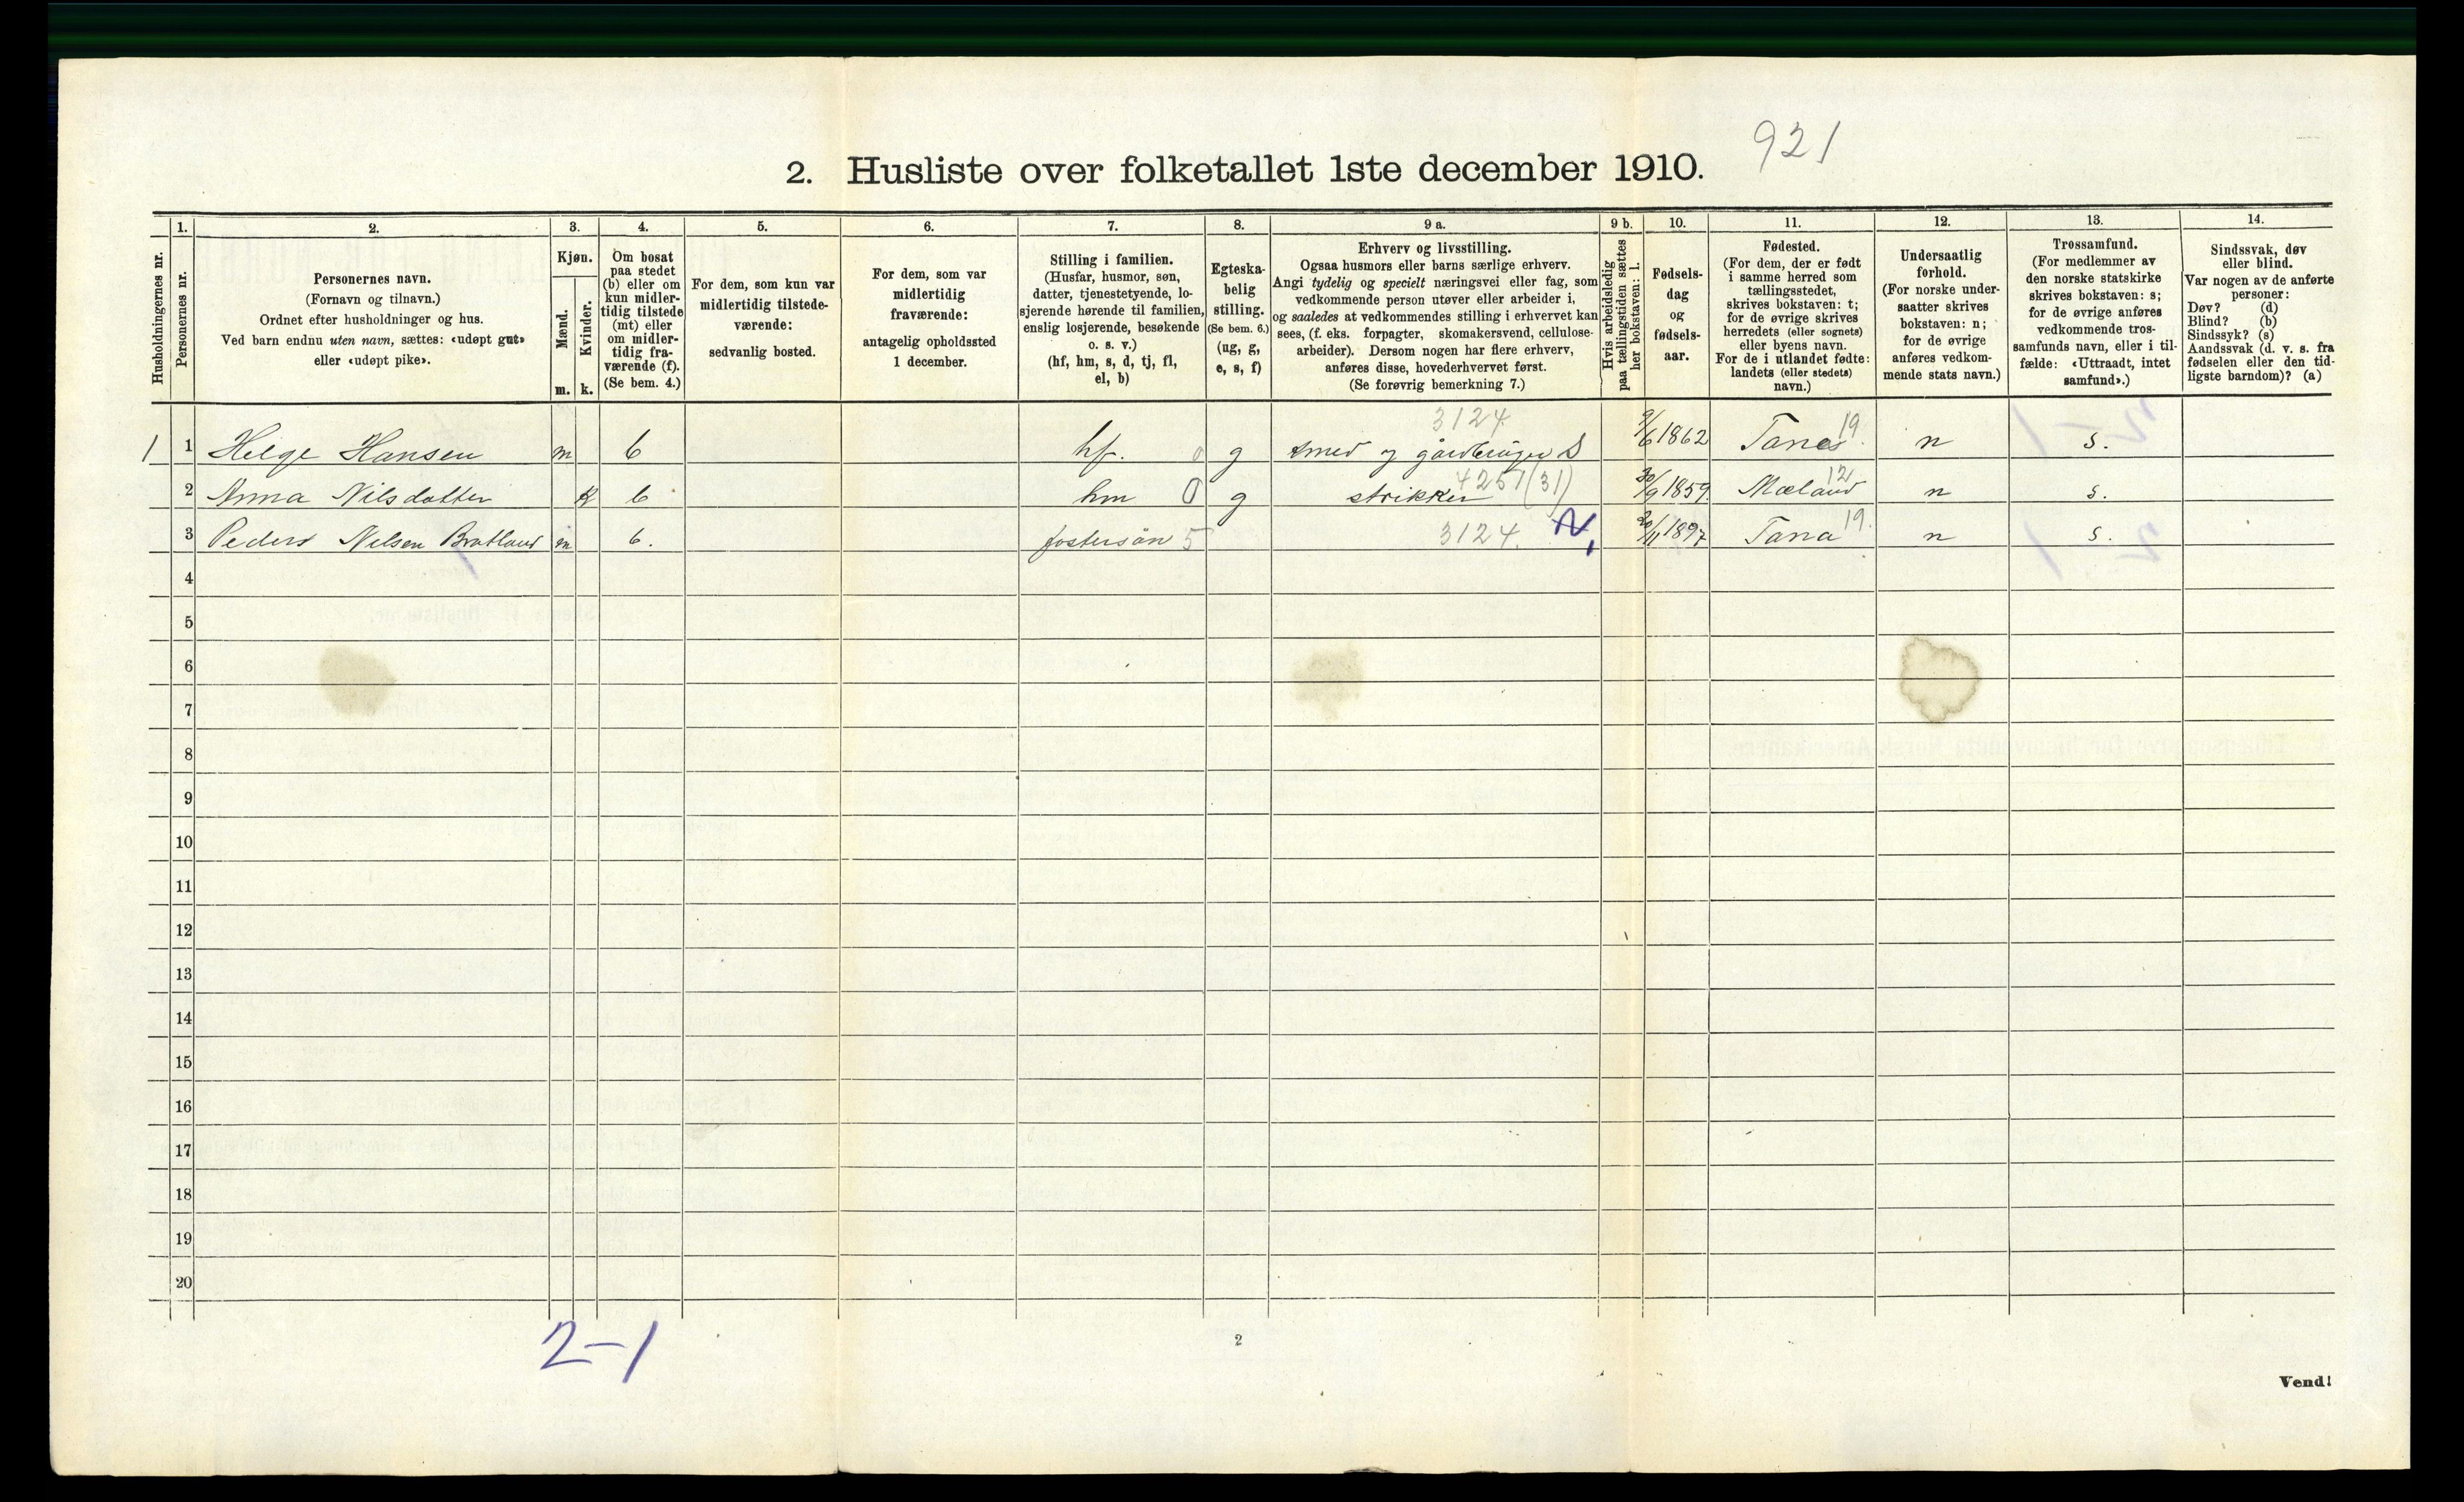 921
2. Husliste over folketallet 1ste december 1910.
Husholdningernes nr.
1.
Personernes nr.
2.
Personernes navn.
(Fornavn og tilnavn.)
Ordnet efter husholdninger og hus.
Ved barn endnu uten navn, sættes: «udøpt gut»
eller «udøpt pike».
3.
Kjøn.
Mænd.
m.
Kvinder.
k.
4.
Om bosat
paa stedet
(b) eller om
kun midler-
tidig tilstede
(mt) eller
om midler-
tidig fra-
værende (f).
(Se bem. 4.)
5.
For dem, som kun var
midlertidig tilstede-
værende:
sedvanlig bosted.
6.
For dem, som var
midlertidig
fraværende:
antagelig opholdssted
1 december.
7.
Stilling i familien.
(Husfar, husmor, søn,
datter, tjenestetyende, lo-
sjerende hørende til familien,
enslig losjerende, besøkende
o. s. v.)
(hf, hm, s, d, tj, fl,
el, b)
8.
Egteska-
belig
stilling.
(Se bem. 6.)
(ug, g,
e, s, f)
9 a.
Erhverv og livsstilling.
Ogsaa husmors eller barns særlige erhverv.
Angi tydelig og specielt næringsvei eller fag, som
vedkommende person utøver eller arbeider i,
og saaledes at vedkommendes stilling i erhvervet kan
sees, (f. eks. forpagter, skomakersvend, cellulose-
arbeider). Dersom nogen har flere erhverv,
anføres disse, hovederhvervet først.
(Se forøvrig bemerkning 7.)
9 b.
Hvis arbeidsledig
paa tællingstiden sættes
her bokstaven: l.
10.
Fødsels-
dag
og
fødsels-
aar.
11.
Fødested.
(For dem, der er født
i samme herred som
tællingsstedet,
skrives bokstaven: t;
for de øvrige skrives
herredets (eller sognets)
eller byens navn.
For de i utlandet fødte:
landets (eller stedets)
navn.)
12.
Undersaatlig
forhold.
(For norske under-
saatter skrives
bokstaven: n;
for de øvrige
anføres vedkom-
mende stats navn.)
13.
Trossamfund.
(For medlemmer av
den norske statskirke
skrives bokstaven: s;
for de øvrige anføres
vedkommende tros-
samfunds navn, eller i til-
fælde: «Uttraadt, intet
samfund».)
14.
Sindssvak, døv
eller blind.
Var nogen av de anførte
personer:
Døv? (d)
Blind? (b)
Sindssyk? (s)
Aandssvak (d. v. s. fra
fødselen eller den tid-
ligste barndom)? (a)
3124
1 1 Helge Hansen m b hf. 0 g smed og gårdbruger S 9/6 1862 Tanas 19. n s.
2 Anna Nilsdatter k b hm 0 g strikker 4257 (31) 30/9 1859. Mæland 12 n s.
3 Peders Nelsen Bratland m b. fostersøn 5 3124. N, 20/11 1897 Tana 19. n s.
4
5
6
7
8
9
10
11
12
13
14
15
16
17
18
19
20
2-1
2
Vend!